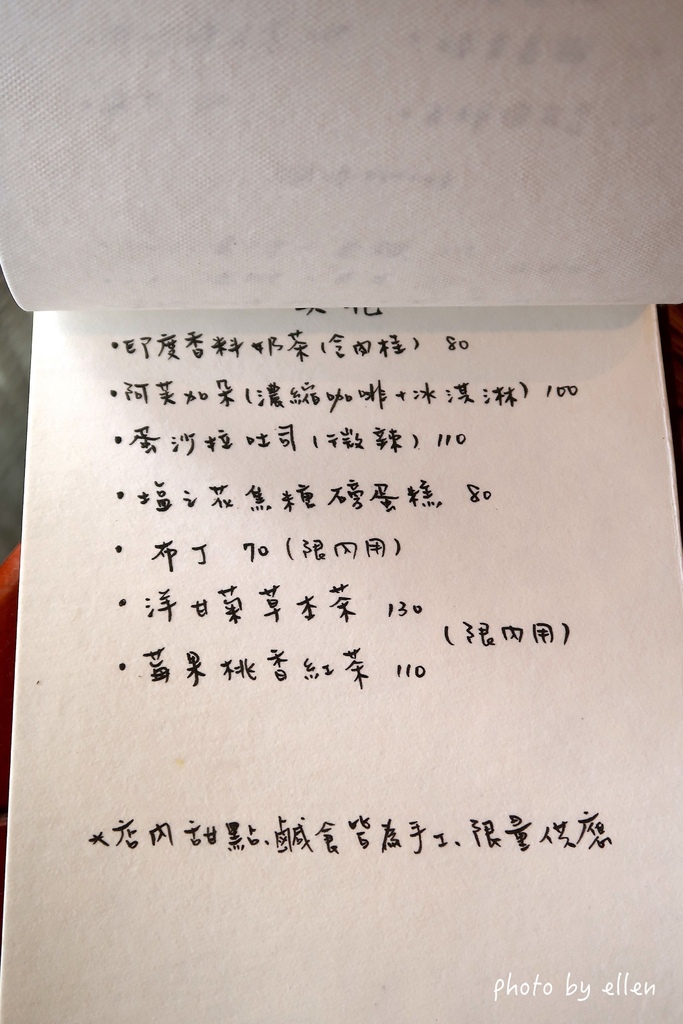 •印度香料奶茶(含肉桂) 80
•阿芙加朵(濃縮咖啡+冰淇淋) 100
•蛋沙拉吐司(微辣) 110
•塩之花焦糖磅蛋糕 80
•布丁 70 (限內用)
•洋甘菊草本茶 130
(限內用)
•莓果桃香紅茶 110
*店內甜點、鹹食皆為手工、限量供應
photo by ellen